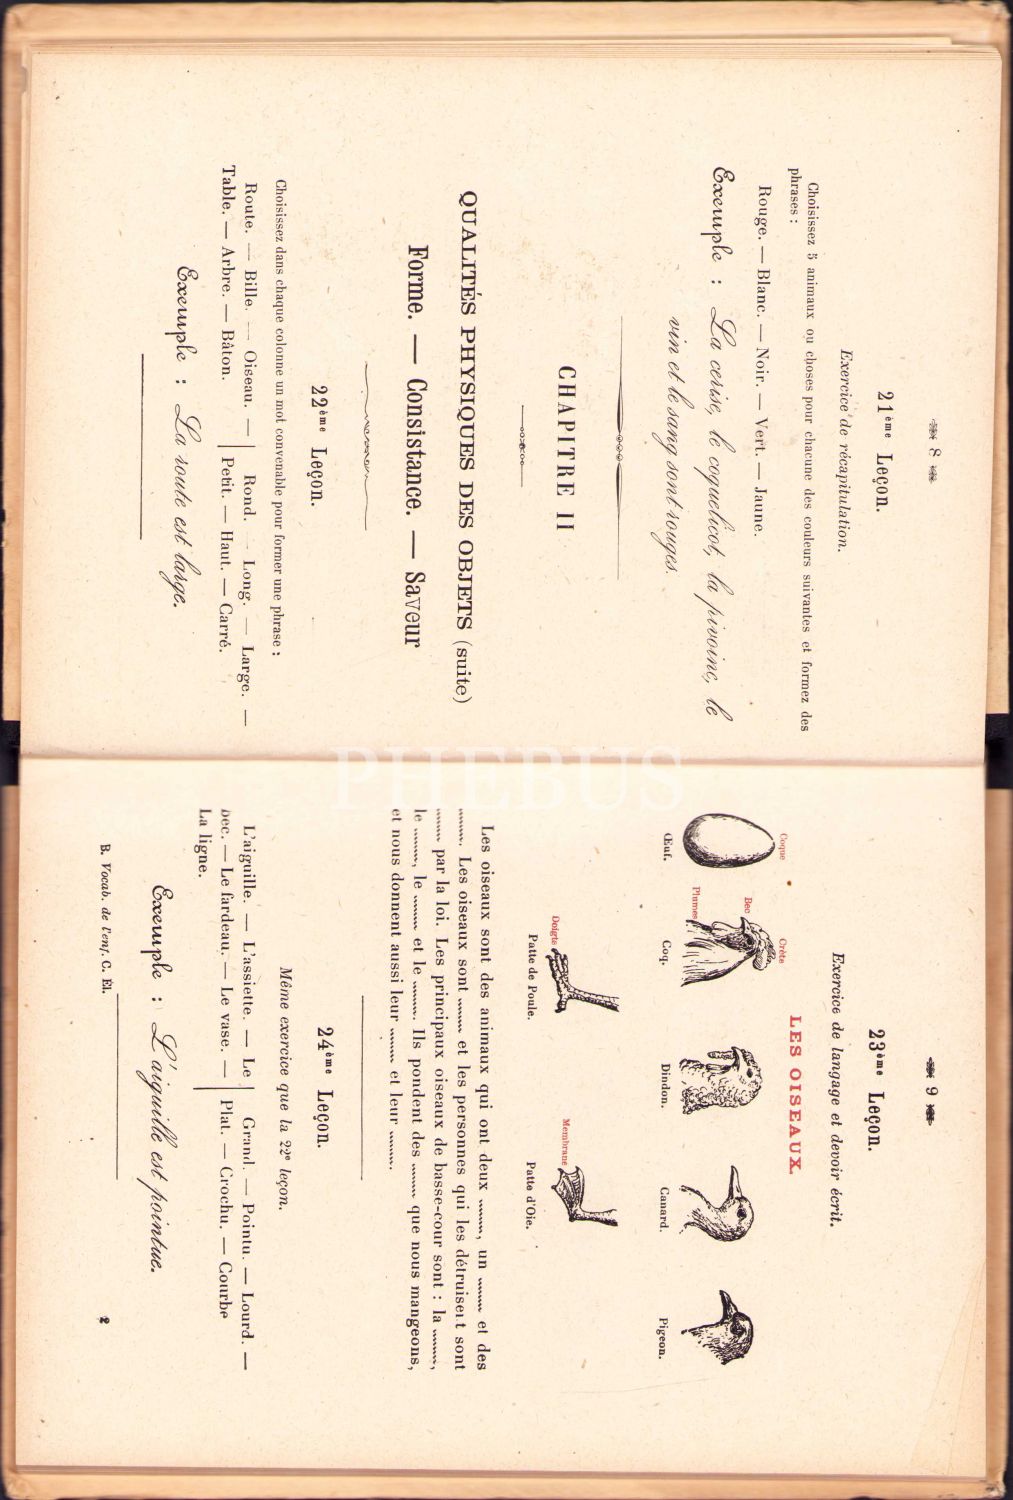 8
21ème Leçon.
Exercice de récapitulation.
Choisissez 5 animaux ou choses pour chacune des couleurs suivantes et formez des
phrases :
Rouge. — Blanc. — Noir. — Vert. — Jaune.
Exemple : La cerise, le coquelicot, la pivoine, le
vin et le sang sont rouges.
CHAPITRE II
QUALITÉS PHYSIQUES DES OBJETS (suite)
Forme. — Consistance. — Saveur
22ème Leçon.
Choisissez dans chaque colonne un mot convenable pour former une phrase :
Route. — Bille. — Oiseau. — | Rond. — Long. — Large. —
Table. — Arbre. — Bâton. | Petit. — Haut. — Carré.
Exemple : La route est large.
PHEBUS
9
23ème Leçon.
Exercice de langage et devoir écrit.
LES OISEAUX.
Coque
Crête
Bec
Plumes
Œuf.
Coq.
Dindon.
Canard.
Pigeon.
Doigts
Membrane
Patte de Poule.
Patte d'Oie.
Les oiseaux sont des animaux qui ont deux ........, un ........ et des
......... Les oiseaux sont ........ et les personnes qui les détruisent sont
........ par la loi. Les principaux oiseaux de basse-cour sont : la ........,
le ........, le ........ et le ......... Ils pondent des ........ que nous mangeons,
et nous donnent aussi leur ........ et leur .........
24ème Leçon.
Même exercice que la 22e leçon.
L'aiguille. — L'assiette. — Le | Grand. — Pointu. — Lourd. —
bec. — Le fardeau. — Le vase. — | Plat. — Crochu. — Courbe
La ligne.
Exemple : L'aiguille est pointue.
B. Vocab. de l'enf. C. Él.
2